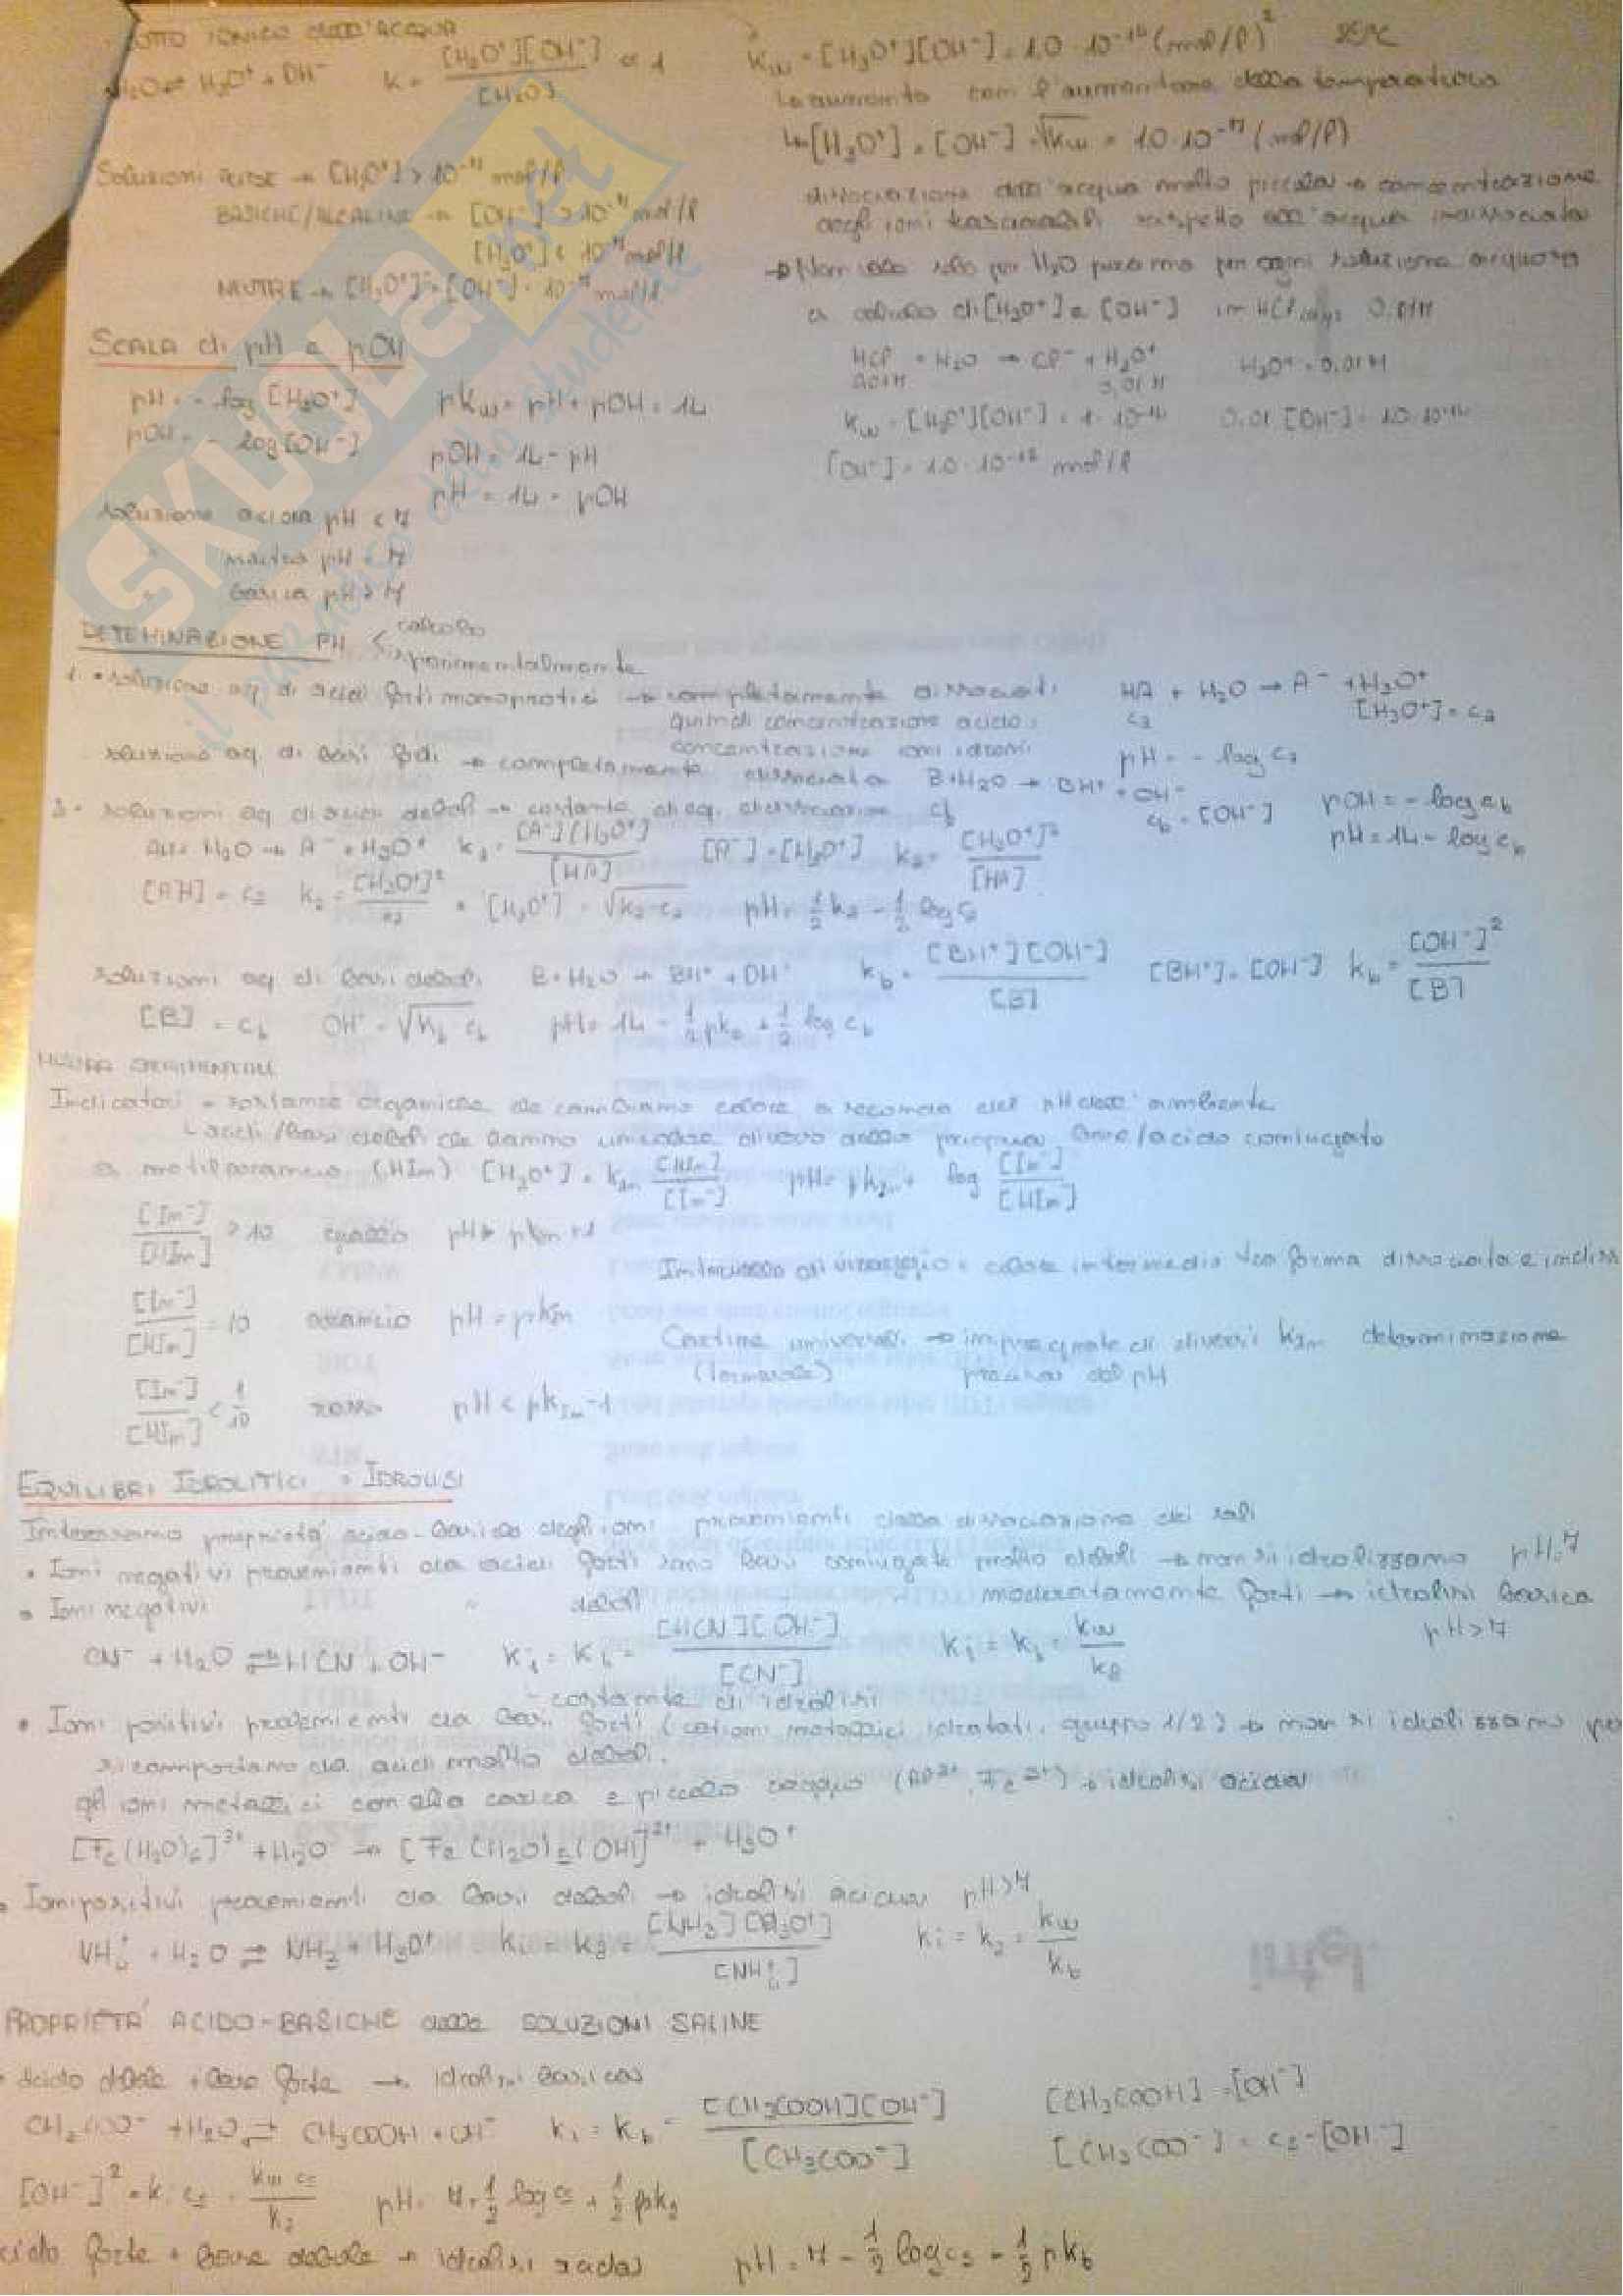 IONICO DELL'ACQUA
H₂O ⇌ H₃O⁺ + OH⁻ K = [H₃O⁺][OH⁻] / [H₂O] << 1
Kw = [H₃O⁺][OH⁻] = 1,0 · 10⁻¹⁴ (mol/l)² 25°C
aumenta con l'aumentare della temperatura
↳ [H₃O⁺] = [OH⁻] = √Kw = 1,0 · 10⁻⁷ (mol/l)
Soluzioni acide → [H₃O⁺] > 10⁻⁷ mol/l
BASICHE/ALCALINE → [OH⁻] > 10⁻⁷ mol/l
[H₃O⁺] < 10⁻⁷ mol/l
NEUTRE → [H₃O⁺] = [OH⁻] = 10⁻⁷ mol/l
dissociazione dell'acqua molto piccola → concentrazione
degli ioni trascurabili rispetto all'acqua indissociata
→ Non solo per H₂O pura ma per ogni soluzione acquosa
es calcolo di [H₃O⁺] e [OH⁻] in HCl 0,01M
HCl + H₂O → Cl⁻ + H₃O⁺ H₃O⁺ = 0,01 M
0,01M 0,01 M
Kw = [H₃O⁺][OH⁻] = 1 · 10⁻¹⁴ 0,01 [OH⁻] = 1,0 · 10⁻¹⁴
[OH⁻] = 1,0 · 10⁻¹² mol/l
SCALA di pH e pOH
pH = - log [H₃O⁺] pKw = pH + pOH = 14
pOH = - log [OH⁻] pOH = 14 - pH
pH = 14 - pOH
soluzione acida pH < 7
" neutra pH = 7
" basica pH > 7
DETEMINAZIONE PH < calcolo
sperimentalmente
1. • soluzione aq. di acidi forti monoprotici → completamente dissociati HA + H₂O → A⁻ + H₃O⁺
quindi concentrazione acido = ca [H₃O⁺] = ca
concentrazione ioni idronio pH = - log ca
soluzione aq. di basi forti → completamente dissociata B + H₂O → BH⁺ + OH⁻
cb = [OH⁻] pOH = - log cb
pH = 14 - log cb
soluzioni aq di acidi deboli → costante di eq. dissociazione
AH + H₂O → A⁻ + H₃O⁺ ka = [A⁻][H₃O⁺] / [HA] [A⁻] = [H₃O⁺] ka = [H₃O⁺]² / [HA]
[AH] = ca ka = [H₃O⁺]² / ca • [H₃O⁺] = √ka · ca pH = ½ ka - ½ log ca
soluzioni aq di basi deboli B + H₂O → BH⁺ + OH⁻ kb = [BH⁺][OH⁻] / [B] [BH⁺] = [OH⁻] kb = [OH⁻]² / [B]
[B] = cb OH⁻ = √kb cb pH = 14 - ½ pkb + ½ log cb
Indicatori = sostanze organiche che cambiano colore a seconda del pH dell'ambiente
↳ acidi/basi deboli che hanno un colore diverso dalla propria base/acido coniugato
es metilarancio (HIn) [H₃O⁺] = kIn [HIn] / [In⁻] pH = pkIn + log [In⁻] / [HIn]
[In⁻] / [HIn] > 10 giallo pH > pkIn + 1
Intervallo di viraggio = colore intermedio tra forma dissociata e indiss
[In⁻] / [HIn] = 10 arancio pH = pkIn
Cartine universali → impregnate di diversi kIn determinazione
(tornasole) precisa del pH
[In⁻] / [HIn] < 1/10 rosso pH < pkIn - 1
EQUILIBRI IDROLITICI = IDROLISI
Interessano proprietà acido-basiche degli ioni provenienti dalla dissociazione dei sali
• Ioni negativi provenienti da acidi forti sono basi coniugate molto deboli → non si idrolizzano pH = 7
• Ioni negativi " deboli moderatamente forti → idrolisi basica
pH > 7
CN⁻ + H₂O ⇌ HCN + OH⁻ ki = kb = [HCN][OH⁻] / [CN⁻] ki = kb = kw / ka
- costante di idrolisi
• Ioni positivi provenienti da basi forti (cationi metallici idratati, gruppo 1/2) → non si idrolizzano per
si comportano da acidi molto deboli.
gli ioni metallici con alta carica e piccolo raggio (Al³⁺, Fe³⁺) → idrolisi acida
[Fe(H₂O)₆]³⁺ + H₂O → [Fe(H₂O)₅(OH)]²⁺ + H₃O⁺
• Ioni positivi provenienti da basi deboli → idrolisi acida pH > 7
NH₄⁺ + H₂O ⇌ NH₃ + H₃O⁺ ki = ka = [NH₃][H₃O⁺] / [NH₄⁺] ki = ka = kw / kb
PROPRIETA' ACIDO-BASICHE delle SOLUZIONI SALINE
• Acido debole + base forte → idrolisi basica
CH₃COO⁻ + H₂O ⇌ CH₃COOH + OH⁻ ki = kb = [CH₃COOH][OH⁻] / [CH₃COO⁻] [CH₃COOH] = [OH⁻]
[CH₃COO⁻] = cs - [OH⁻]
[OH⁻]² = ki cs = kw cs / ka pH = 7 + ½ log cs + ½ pka
acido forte + base debole → idrolisi acida pH = 7 - ½ log cs - ½ pkb
SKUOLA.net
il paradiso dello studente
intel.